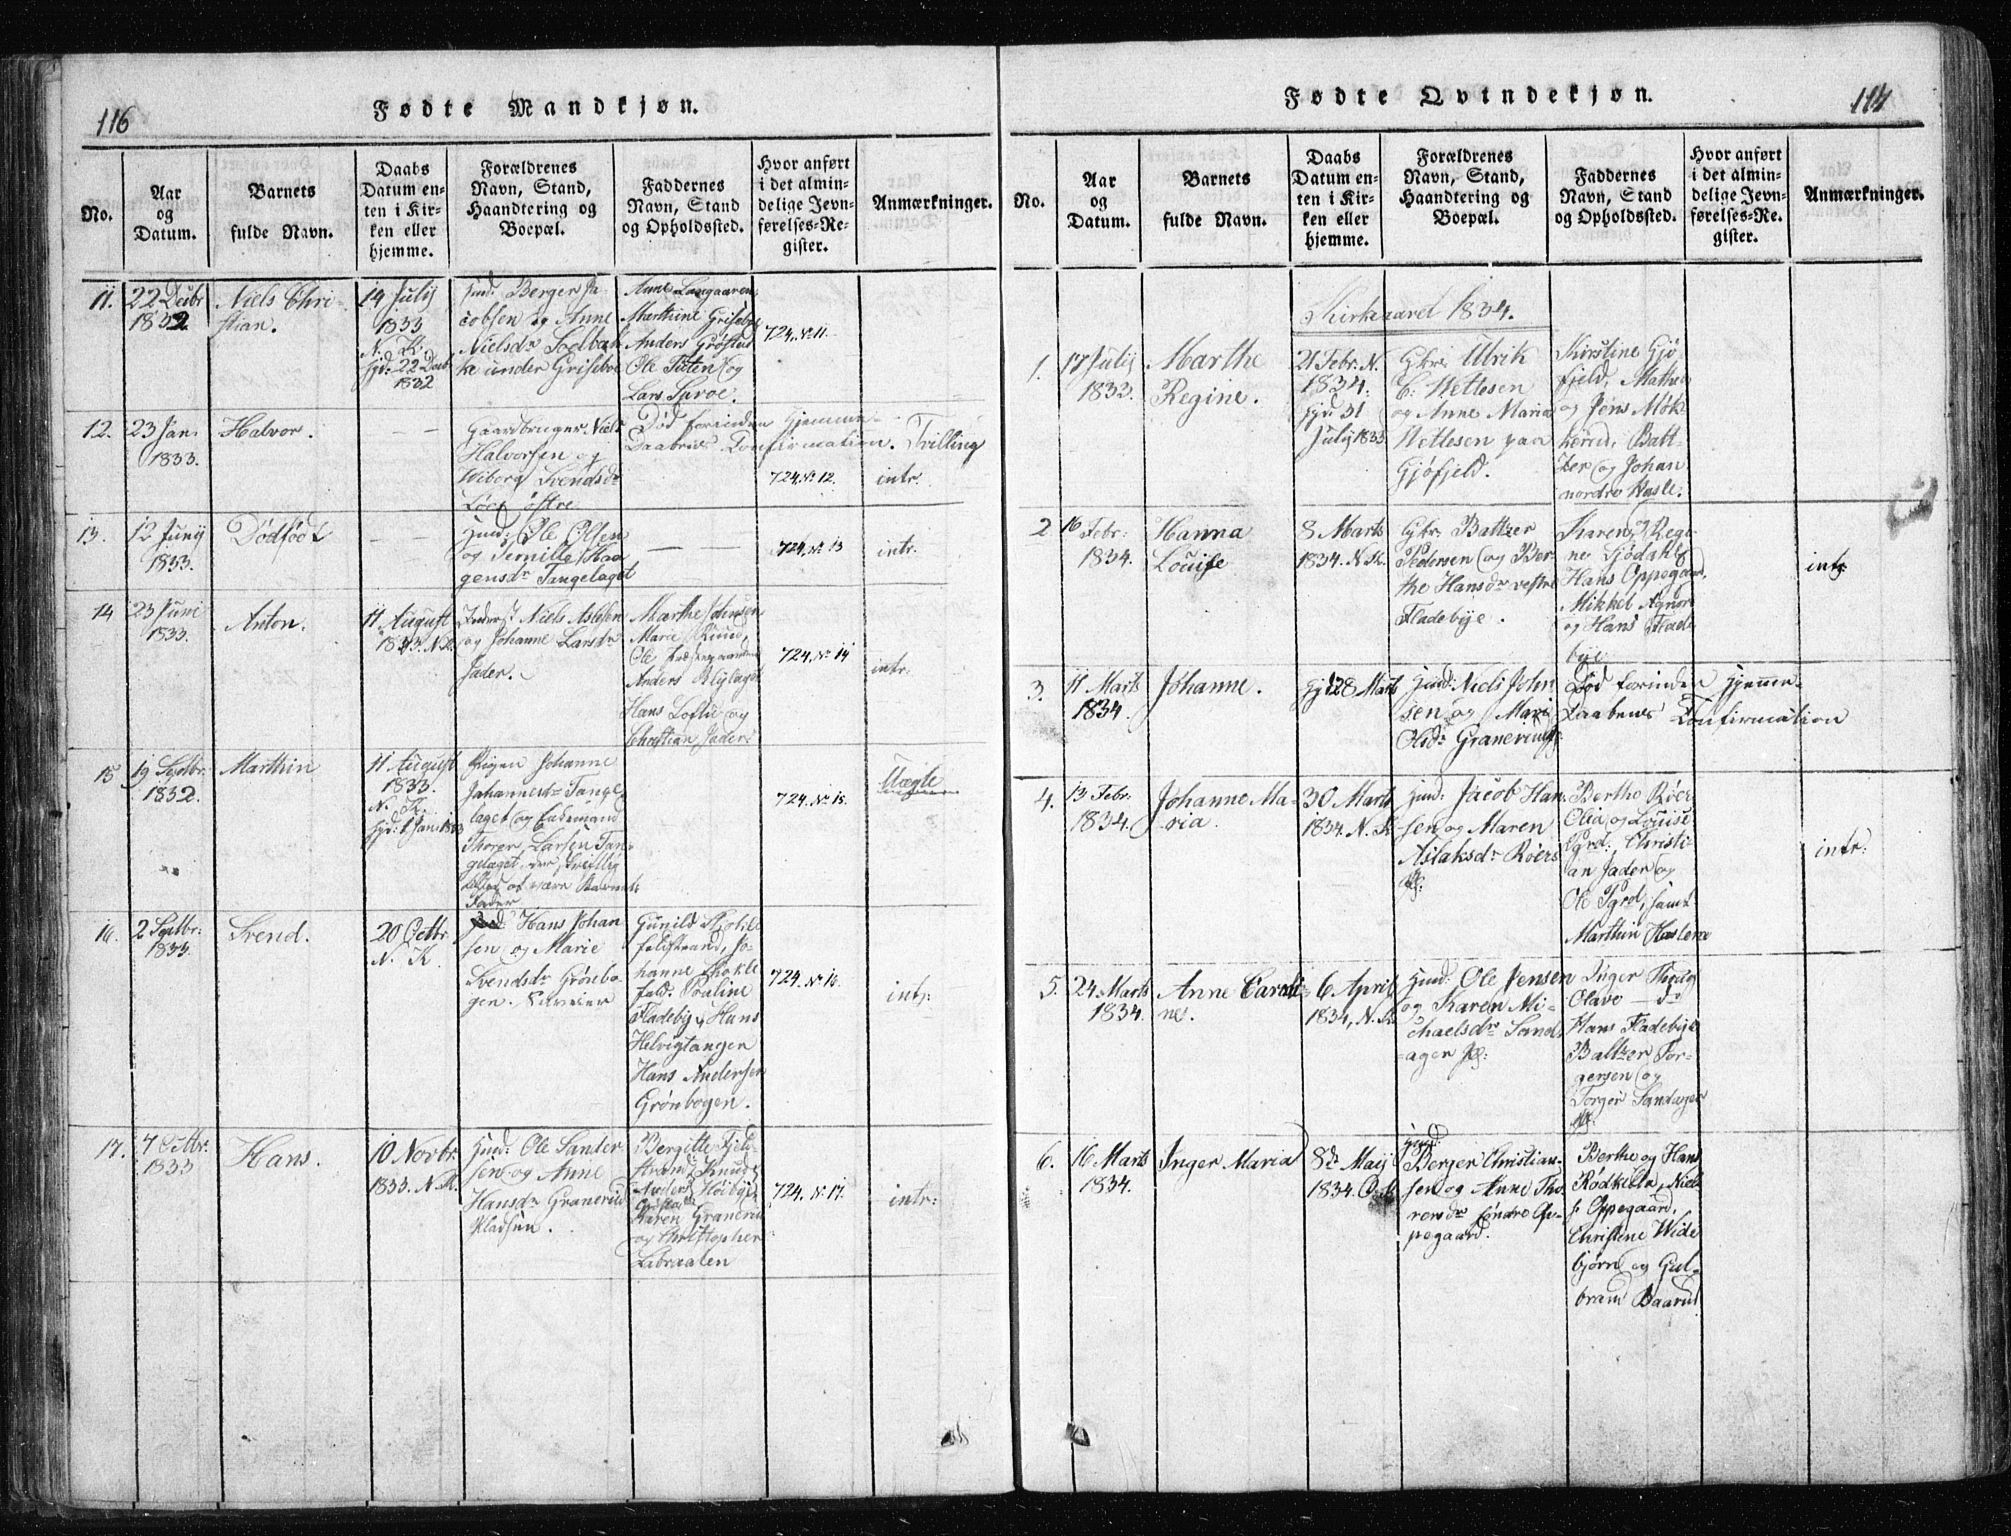 116
Fødte Mandkjøn.
No.
Aar
og
Datum.
Barnets
fulde Navn.
Daabs
Datum en-
ten i Kir-
ken eller
hjemme.
Forældrenes
Navn, Stand,
Haandtering og
Boepæl.
Faddernes
Navn, Stand
og Opholdssted.
Hvor anført
i det almin-
delige Jevn-
førelses-Re-
gister.
Anmærkninger.
11.
22 Decbr
1832
Niels Chri-
stian.
14 Julij
1833
N. K.
Hjd: 22 Decb
1832
Huusd: Berger Ja-
cobsen og Anne
Nielsdr
ke under Grisebye
Anne Langaaren,
Marthine Grisebye
Anders Grøstad
Ole Tuten og
Lars
724, No 11.
12.
23 Jan.
1833.
Halvor.
— —
Gaardbruger Niels
Halvorsen og
Wiborg Svendsdr
østre
Død forinden Hjemme-
Daabens Confirmation.
724, No 12.
Tvilling
intr.
13.
12 Junij
1833.
Dødfødt
— —
Huusd: Ole Olsen
og Pernille Haa-
gensdr Tangelaget
— —
724, No 13
intr.
14
23 Juni
1833.
Anton.
11 August
1833. N. K.
Inderst Niels Aslesen
og Johanne Larsdr
Jader.
Marthe Johnsen
Marie Ruud,
Ole
Anders Rylaget
Hans Loftu og
Christian Jader.
724, No 14
intr.
15
19 Septbr.
1832.
Marthin
11 August
1833.
N. K.
Hjd: 1 Jan: 1833
Pigen Johanne
Johannesdr Tange
laget og Enkemand
Thorer Larsen Tan-
gelaget, der
at være Barnets
Fader
724, No 15.
Uægte
16.
2 Septbr:
1833.
Svend.
20 Octbr
N. K
Hans Johan
sen og Marie
Svendsdr Grønbo-
gen.
Gunild
feldstrand, Jo-
hanne
feld. Pauline
Fladeby, Hans
Helvigtangen
Hans Andersen
Grønbogen.
724, No 16.
intr.
17.
7 Octbr.
1833
Hans.
10 Novbr
1833. N. K.
Huusd: Ole Sander
sen og Anne
Hansdr Granerud
Pladsen.
Bergitte Fjeld-
strand, Knud og
Anders Høibye
Karen Granerud
og Christopher
Labraaten
724. No 17.
intr:
Fødte Qvindekjøn.
117
No.
Aar
og
Datum.
Barnets
fulde Navn.
Daabs
Datum en-
ten i Kir-
ken eller
hjemme.
Forældrenes
Navn, Stand,
Haandtering og
Boepæl.
Faddernes
Navn, Stand
og Opholdssted.
Hvor anført
i det almin-
delige Jevn-
førelses-Re-
gister.
Anmærkninger.
Kirkeaaret 1834.
1.
17 Julij
1833.
Marthe
Regine.
21 Febr. N.
1834.
Hjd 31
Julij 1833
Gbr. Ulrik
C. Nettesen
og Anne Maria
Nettesen paa
Gjøfjeld.
Kirstine Gjø
fjeld, Mathea
og Jens Møk
kerud, Balt-
zer og Johan
nordre Hasle.
2
16
Febr.
1834.
Hanna
Louise
8 Marts
1834. N. K.
Gbr. Baltzer
Pedersen og Ber-
the Hansdr vestre
Fladebye.
Karen, Regi-
ne
Hans Oppegaard,
Mikkel Agnor
og Hans Flade-
bye
intr.
3.
11 Marts
1834.
Johanne.
Hjd 28 Marts
Huusd: Niels John
sen og Mari
Olsdr Granerud
Død forinden Hjemme-
Daabens Confirmation
4.
13 Febr.
1834.
Johanne Ma-
ria.
30 Marts
1834. N. K
Huusd: Jacob Han-
sen og Maren
Aslaksdr Røers
Berthe Røer
Olea og Louise
Christi-
an Jader og
Ole samt
Marthin Haslem
intr.
5.
24 Marts
1834.
Anne Caroli-
ne.
6 April
1834, N. K
Huusd: Ole Jensen
og Karen Mi-
chaelsdr Sand-
agen
Inger
Olave — do
Hans Fladebye
Baltzer Tor-
gersen og
Torger Sandagen
6.
16 Marts
1834.
Inger Maria
8de Maij
1834.
Huusd:
Berger Christian-
sen og Anne Tho-
rersdr søndre Op-
pegaard.
Berthe og Hans
Rødkilla, Niels
s. Oppegaard,
Christine Wide
bjørn og Gul-
brand Baarud